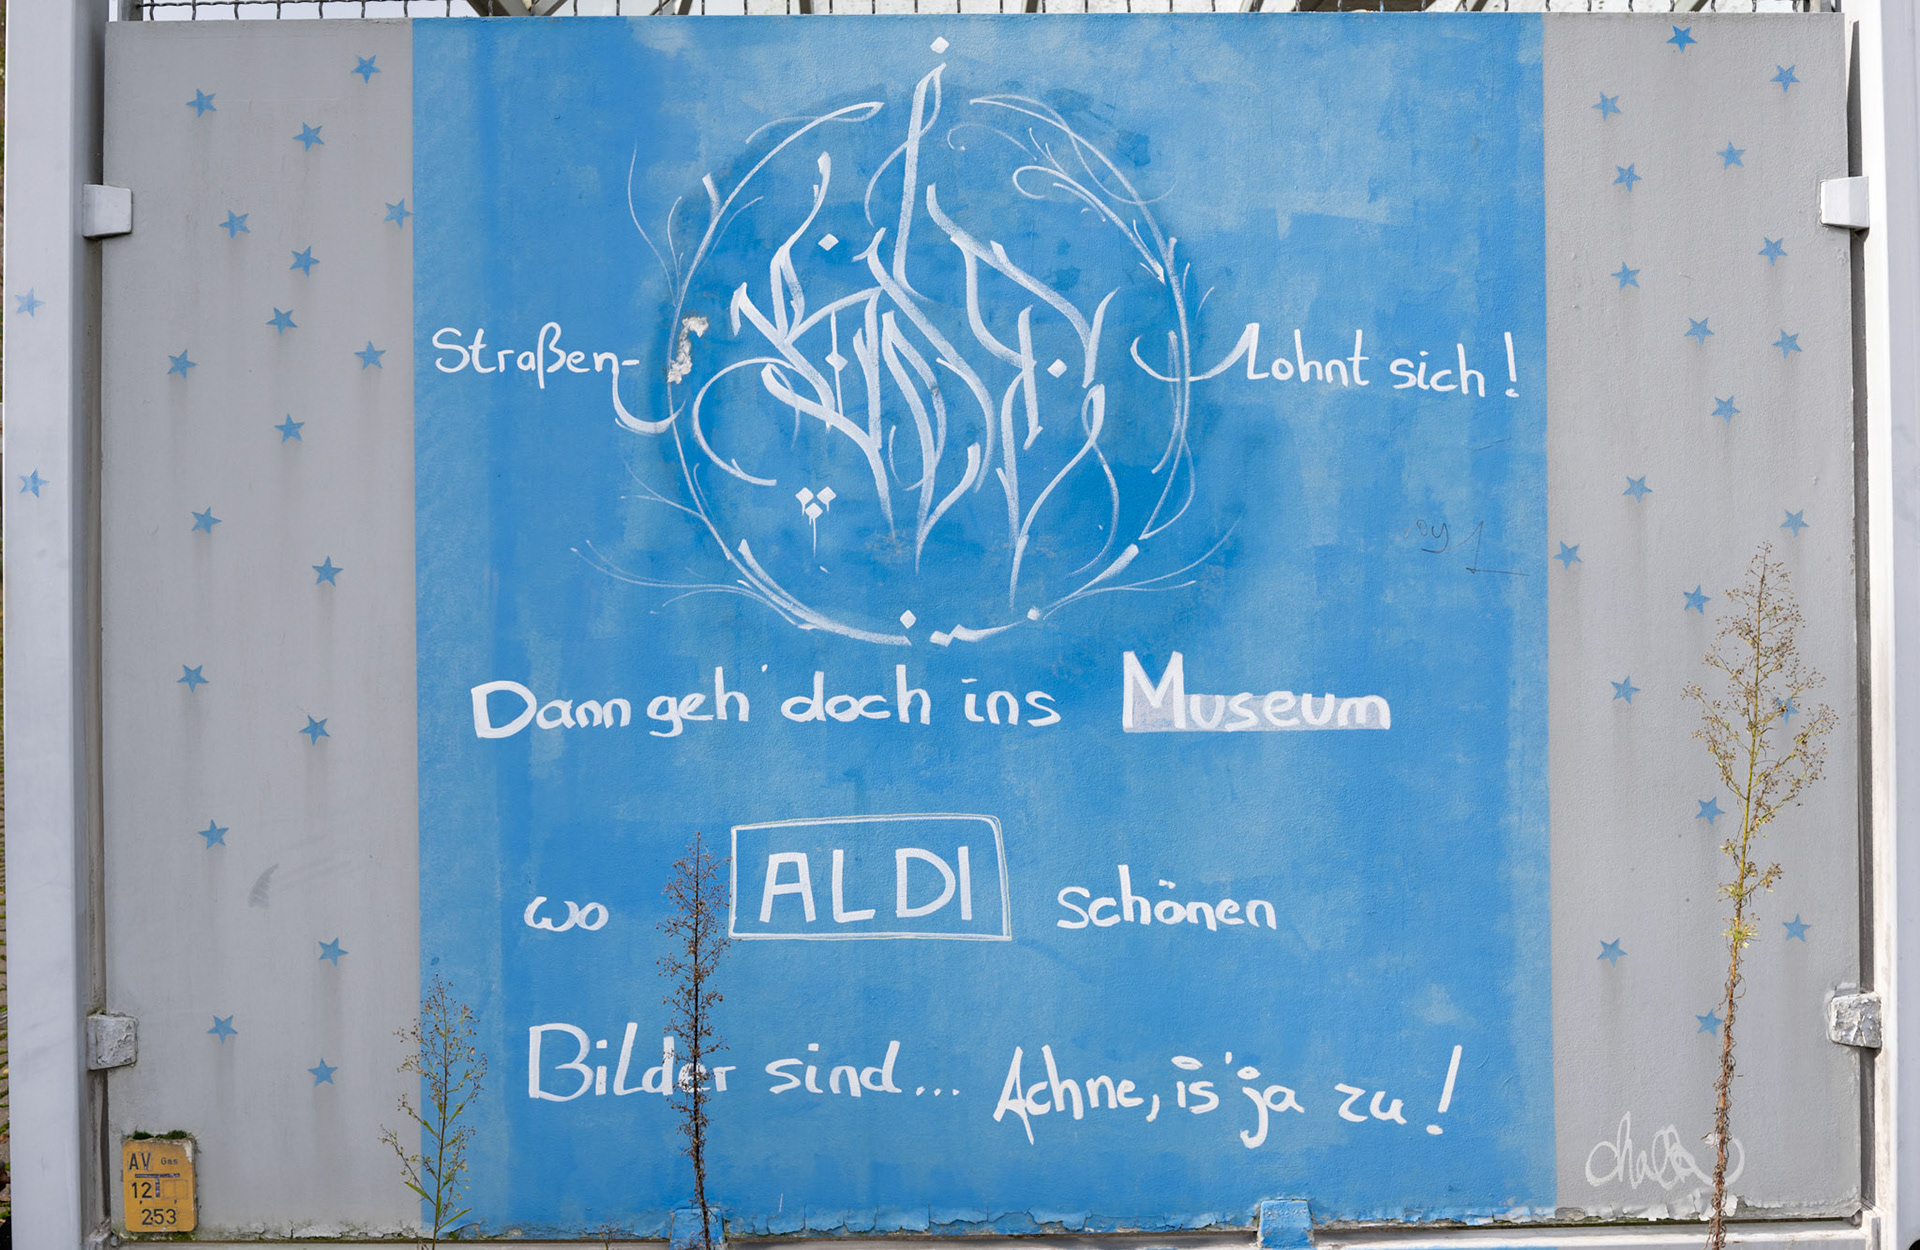 Straßen- lohnt sich!
Dann geh' doch ins Museum
wo ALDI schönen
Bilder sind... Achne, is' ja zu!
AV Gas
12
253